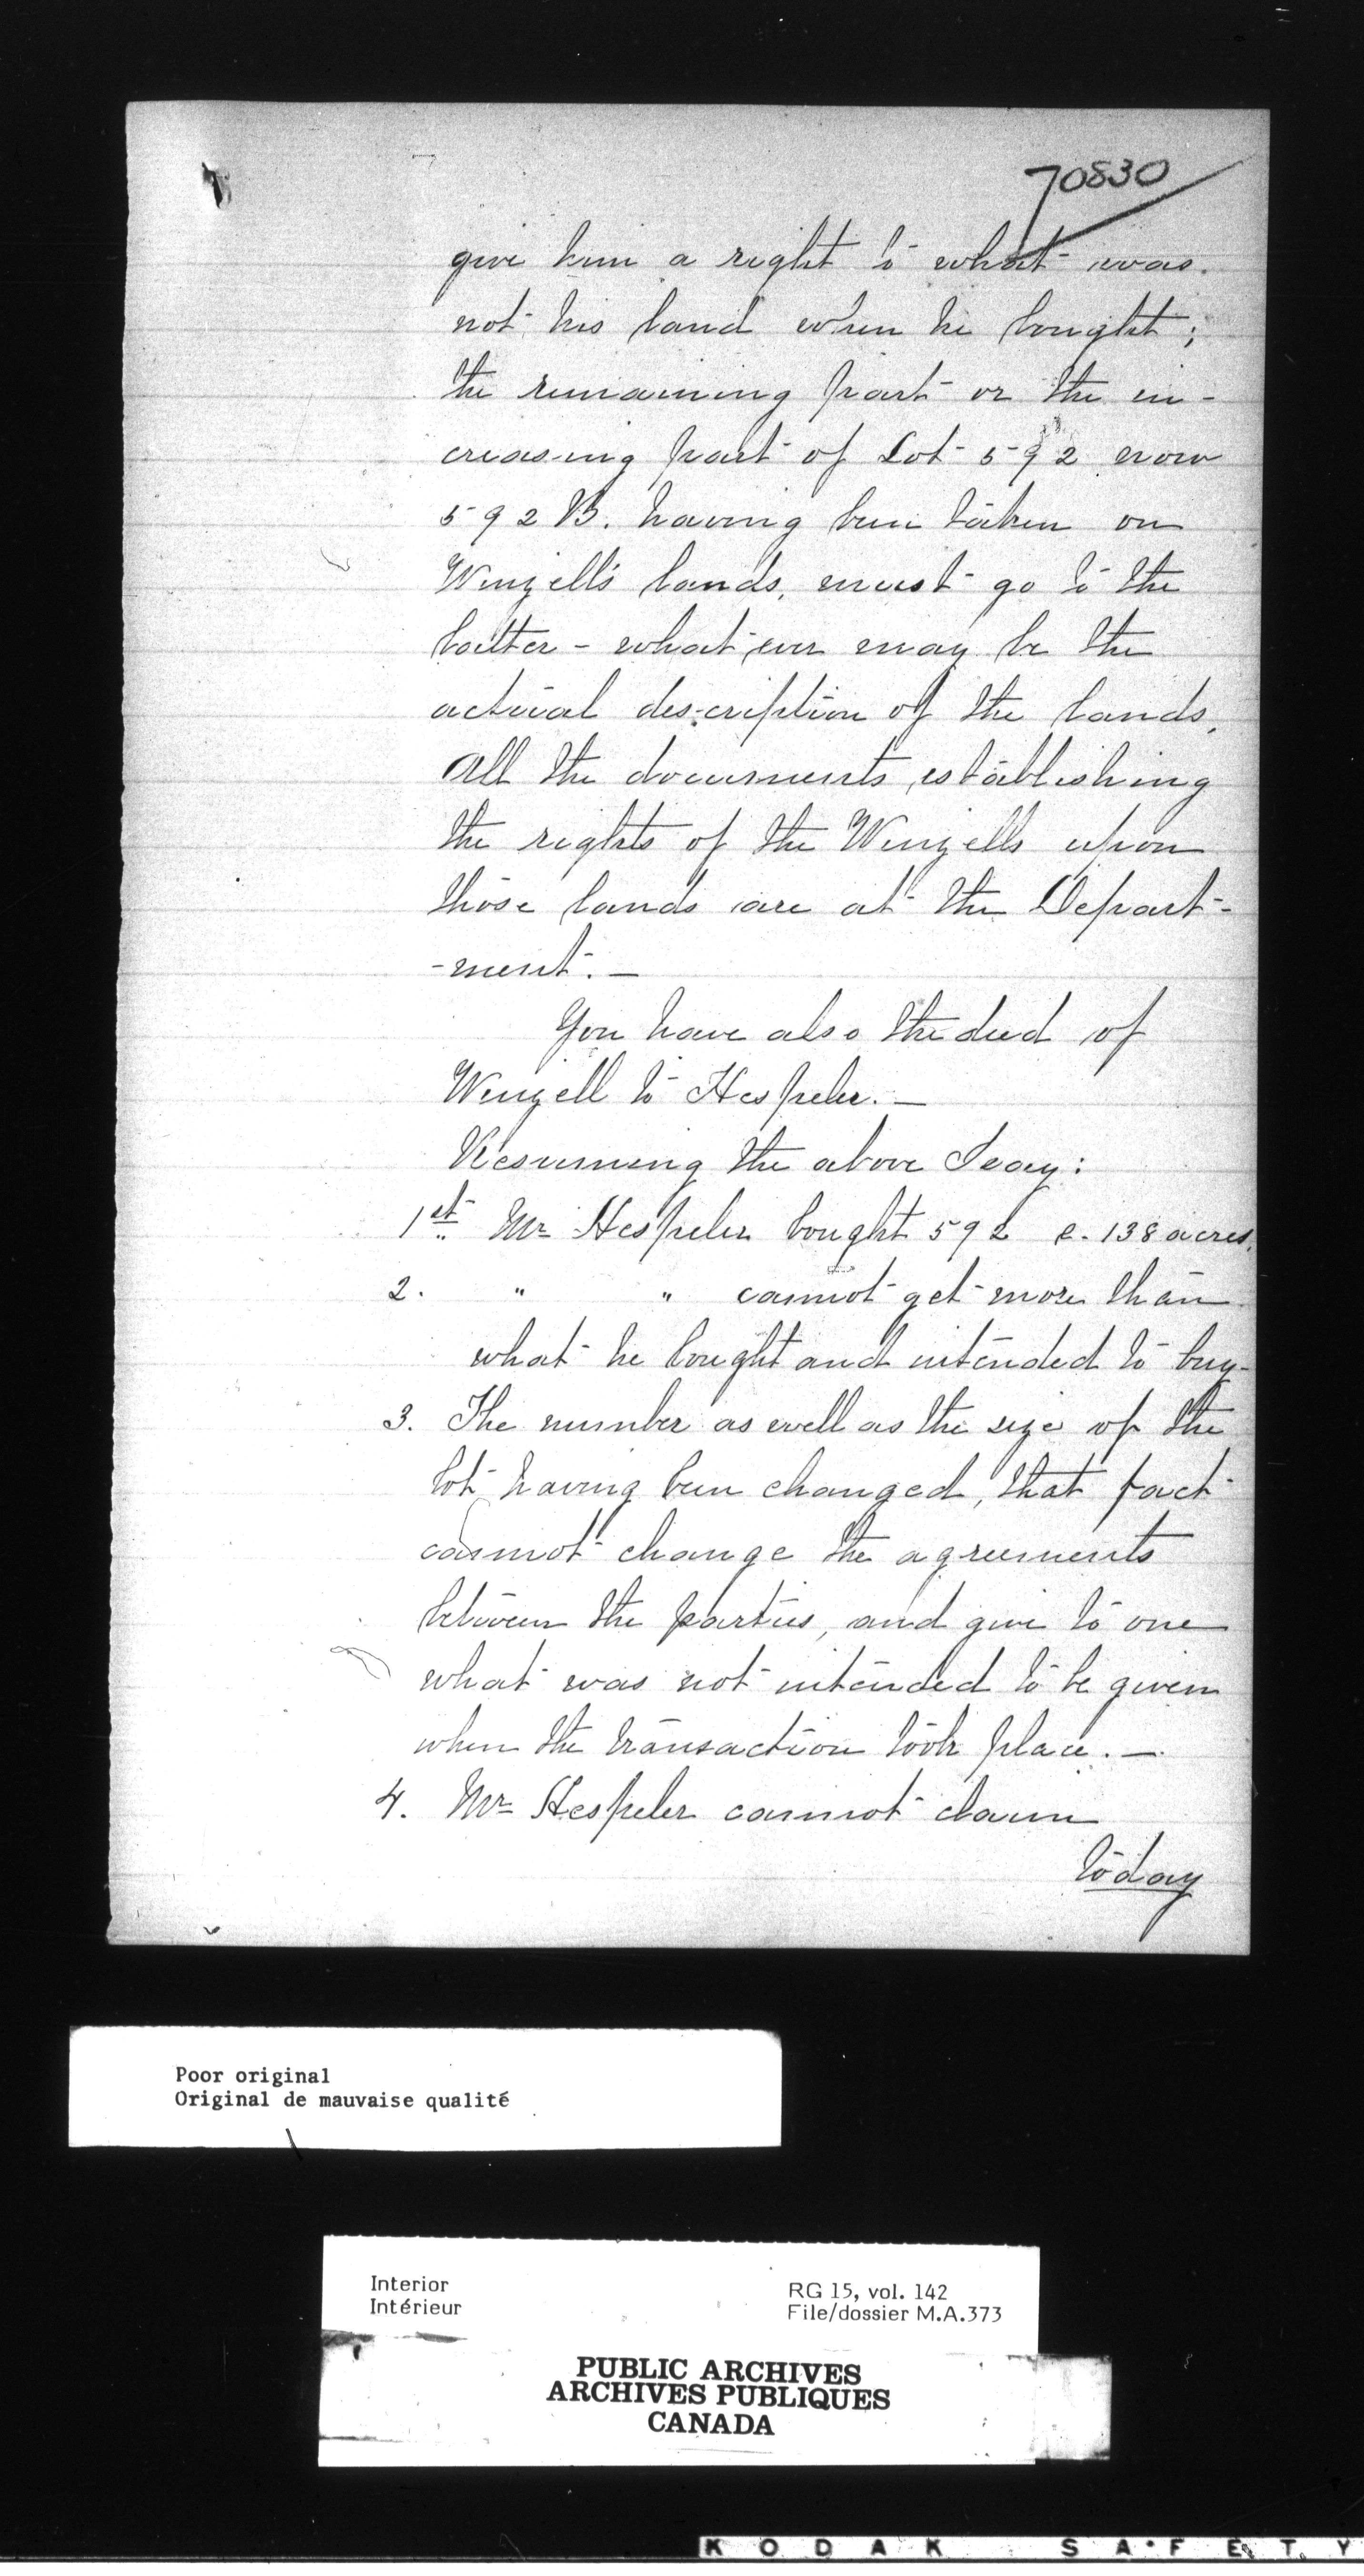 70830
give him a right to what was
not his land when he bought;
the remaining part or the in-
creasing part of Lot 592 now
592 B. having been taken on
Wenzell's lands, must go to the
latter - what ever may be the
actual description of the lands.
All the documents establishing
the rights of the Wenzells upon
those lands are at the Depart-
-ment. —
You have also the deed of
Wenzell to Hespeler. —
Resuming the above I say:
1st. Mr Hespeler bought 592 e. 138 acres.
2. " " cannot get more than
what he bought and intended to buy -
3. The number as well as the size of the
lot having been changed, that fact
cannot change the agreements
between the parties, and give to one
what was not intended to be given
when the transaction took place. —
4. Mr Hespeler cannot claim
to day
Poor original
Original de mauvaise qualité
Interior
Intérieur
RG 15, vol. 142
File/dossier M.A.373
PUBLIC ARCHIVES
ARCHIVES PUBLIQUES
CANADA
KODAK SAFETY